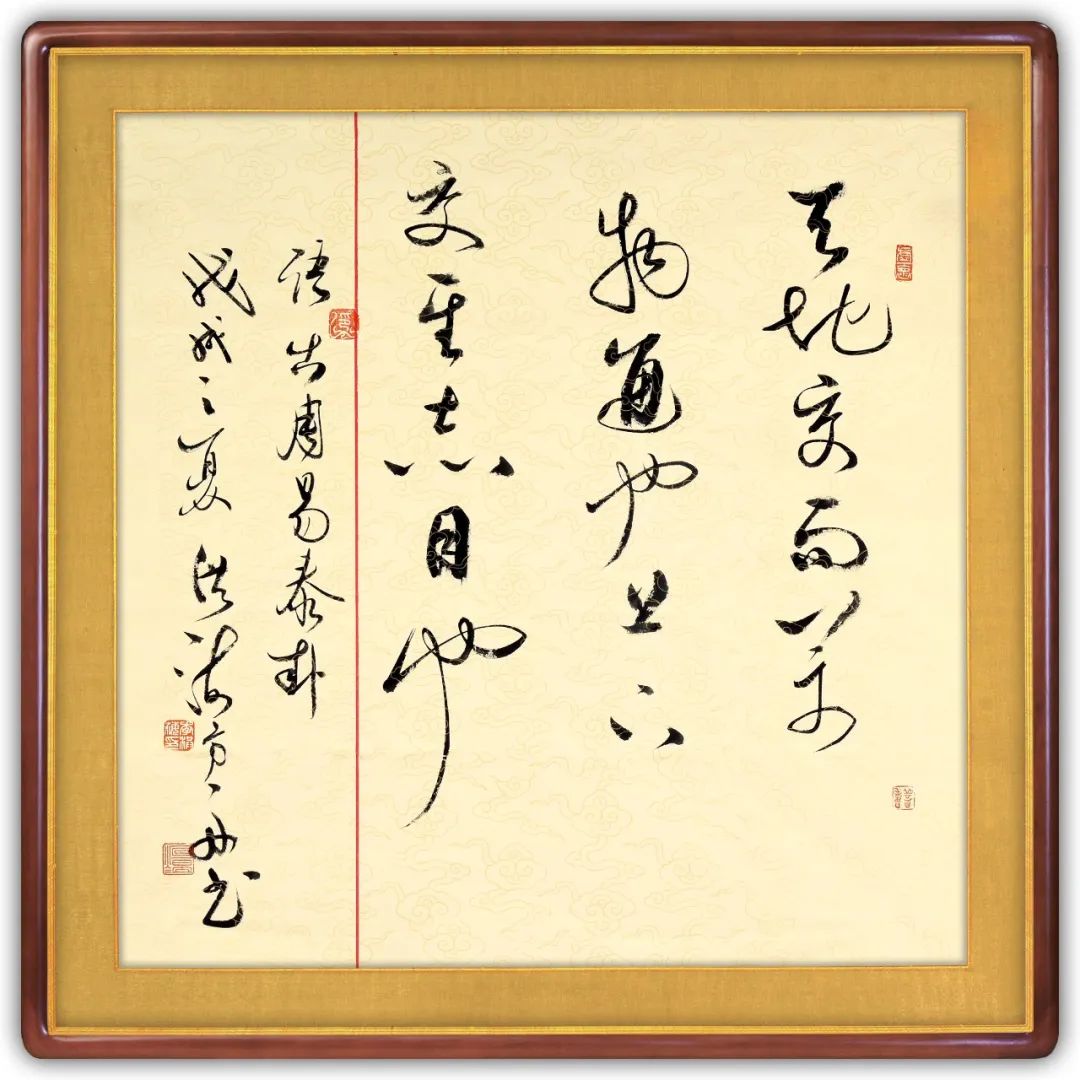 天地交而萬
物通也上下
交其志同也
語出周易泰卦
戊戌之夏 海方舟书